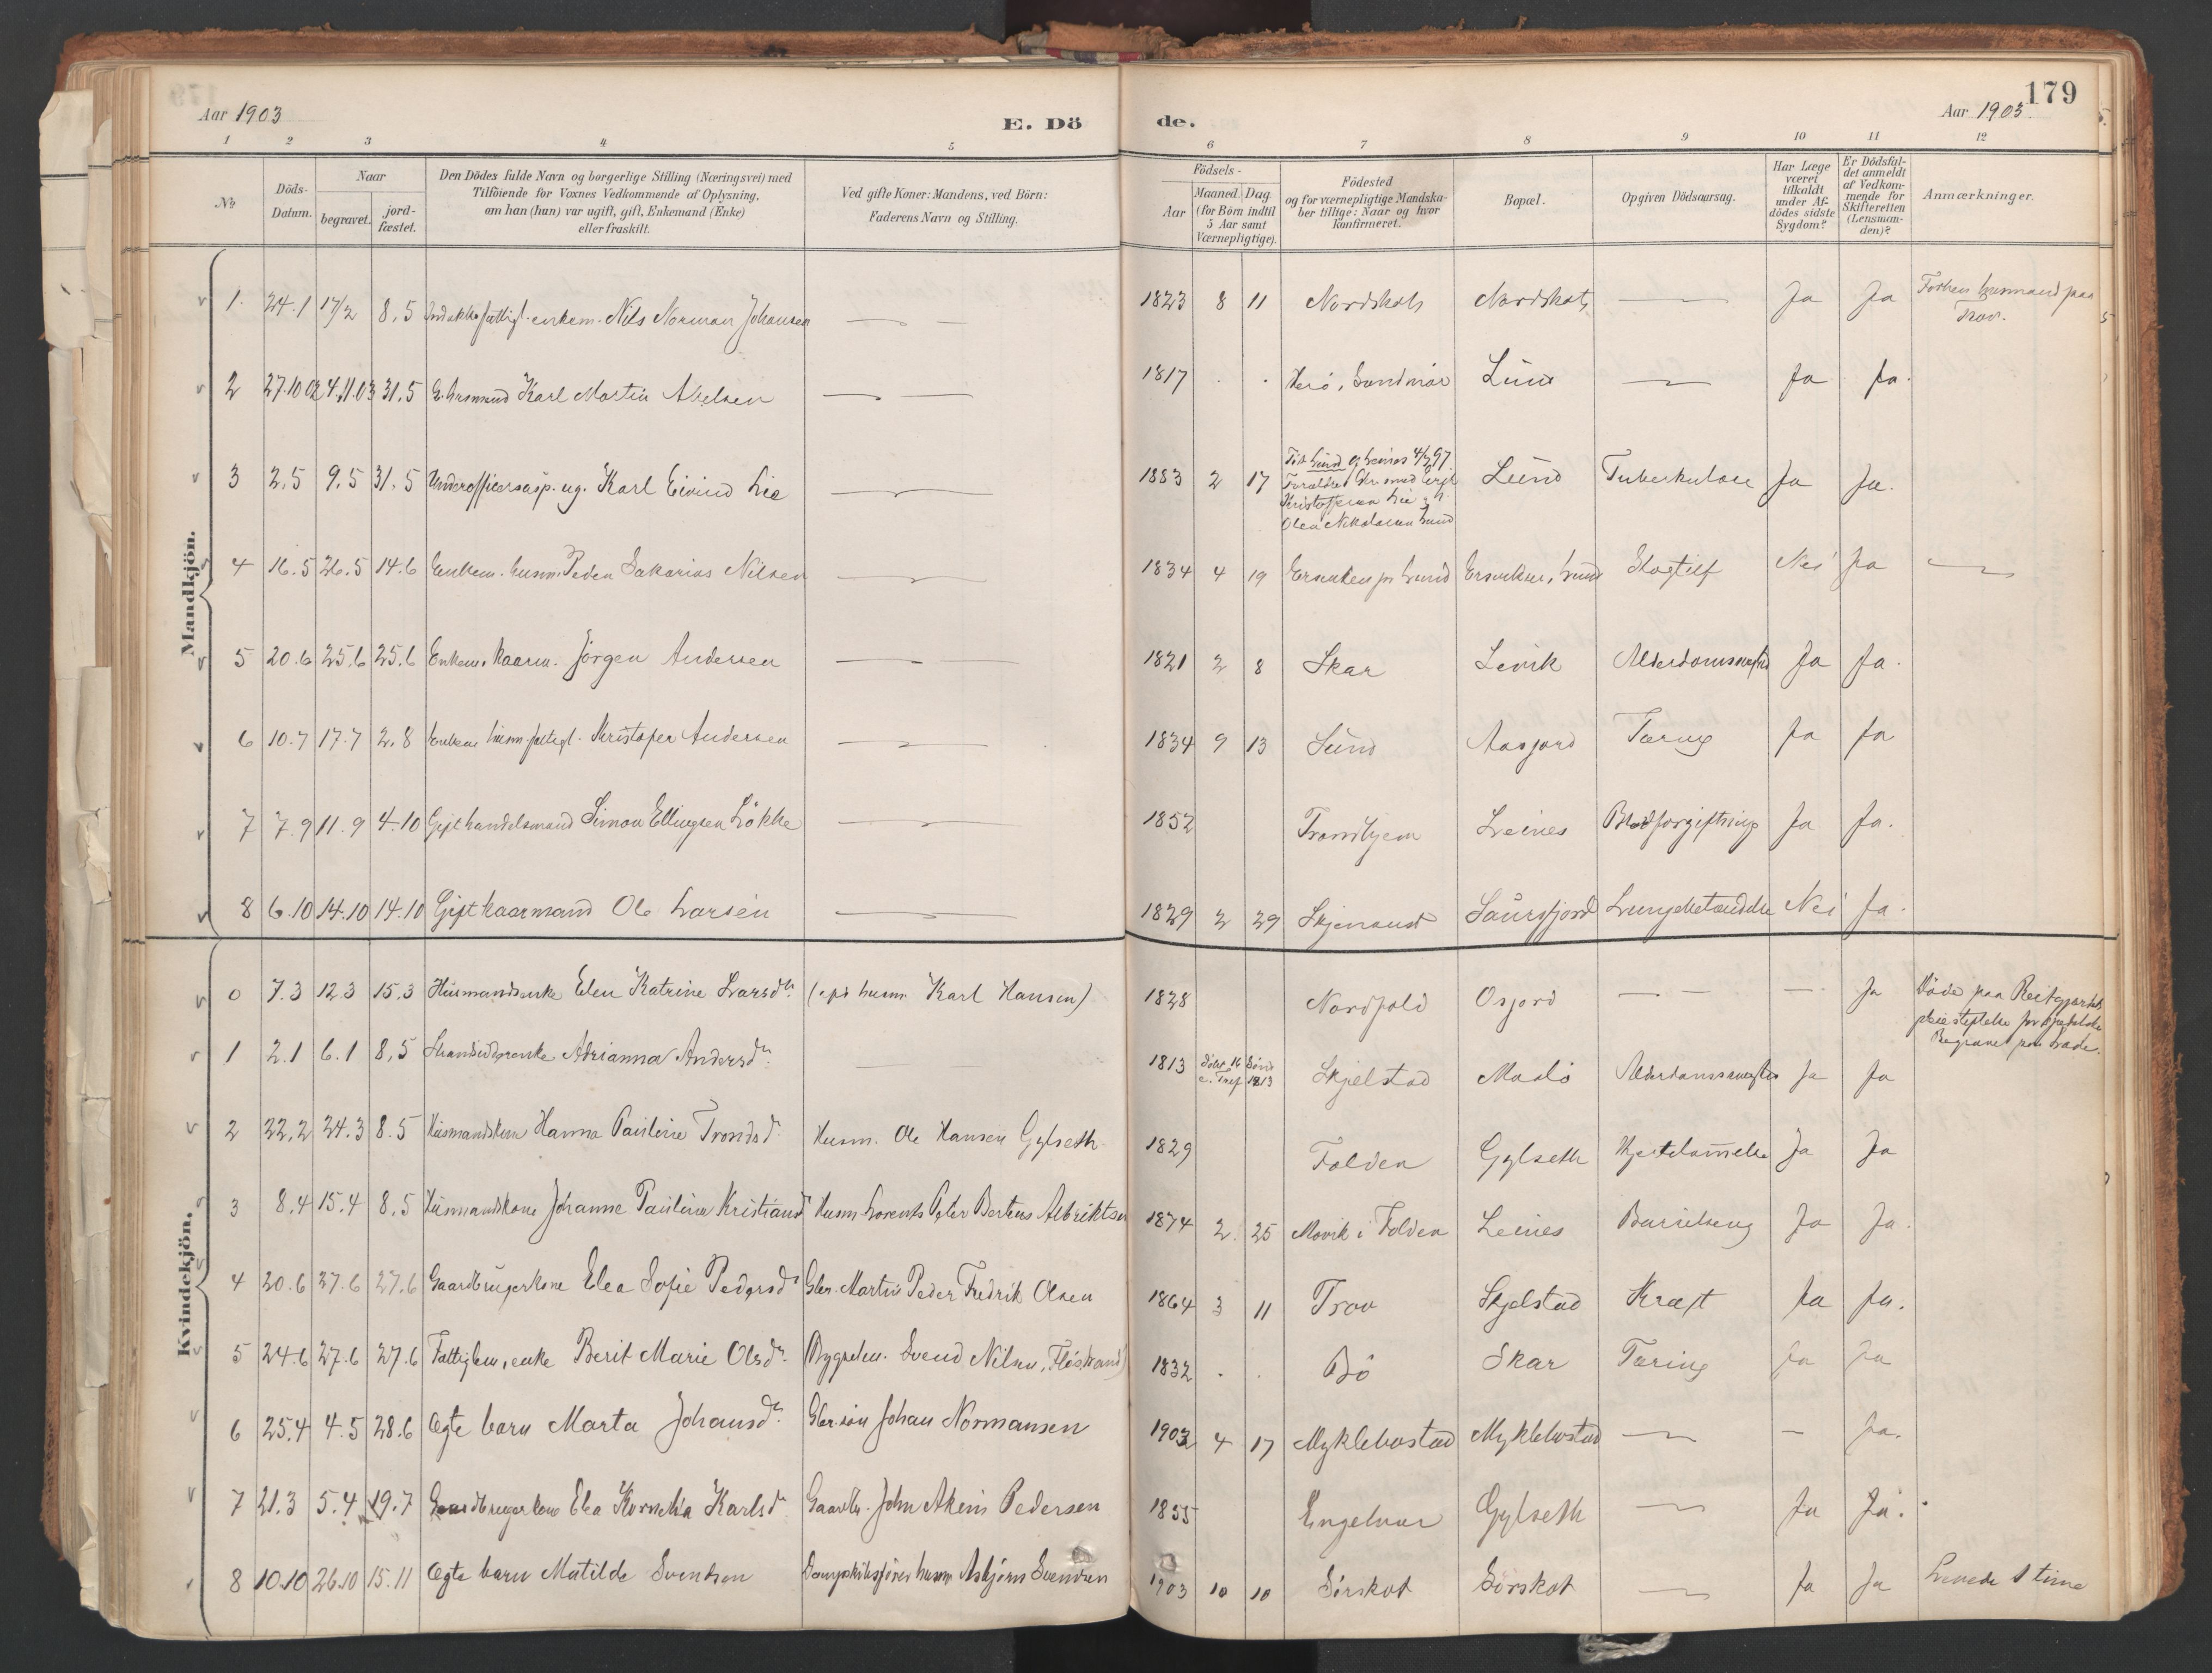 179
Aar 1903
E. Dö
de.
Aar 1903
1 2 3 4 5 6 7 8 9 10 11 12
No
Döds-Datum.
Naar
begravet.
jord-fæstet.
Den Dödes fulde Navn og borgerlige Stilling (Næringsvei) med
Tilföiende for Voxnes Vedkommende af Oplysning,
om han (hun) var ugift, gift, Enkemand (Enke)
eller fraskilt.
Ved gifte Koner: Mandens, ved Börn:
Faderens Navn og Stilling.
Födsels-
Aar
Maaned. Dag
(for Börn indtil
5 Aar samt
Værnepligtige).
Födested
og for værnepligtige Mandska-
ber tillige: Naar og hvor
konfirmeret.
Bopæl.
Opgiven Dödsaarsag.
Har Læge
været
tilkaldt
under Af-
dödes sidste
Sygdom?
Er Dödsfal-
det anmeldt
af Vedkom-
mende for
Skifteretten
(Lensman-
den)?
Anmærkninger.
Mandkjön.
1. 24.1 17/2 8.5 enkem. Nils Norman Johansen — — 1823 8 11 Nordskot Nordskot — Ja Ja Forhen husmand paa
2 27.10 02 4.11.03 31.5 G. husmand Karl Martin Abelsen — — 1817 . . Herö, Søndmör Lund — Ja Ja.
3 2.5 9.5 31.5 Underofficersasp. ug. Karl Eivind Lie — 1883 2 17 Lund Tuberkulose Ja Ja.
4 16.5 26.5 14.6 Enkem. husm. Peder Sakarias Nilsen — 1834 4 19 Slagtilf Nei Ja —
5 20.6 25.6 25.6 Enkem. kaarm. Jörgen Andersen — 1821 2 8 Skar Levik Ja Ja.
6 10.7 17.7 2.8 Kristofer Andersen — 1834 9 13 Lund Aasjord Tæring Ja Ja
7 7.9 11.9 4.10 Gift handelsmand Simon Ellingsen Lökke — 1852 Trondhjem Leines Blodforgiftning Ja Ja.
8 6.10 14.10 14.10 Gift kaarmand Ole Larsen — 1829 2 29 Saursfjord Lungebetændelse Nei Ja.
Kvindekjön.
0 7.3 12.3 15.3 Husmandsenke Elen Katrine Larsdr. husm. Karl Hansen) 1828 Nordfold Osjord — — — Ja Döde paa
1 2.1 6.1 8.5 Adrianna Andersdr. — 1813 Skjelstad Ja Ja
2 22.2 24.3 8.5 Husmandskone Hanna Pauline Trondsd. Husm. Ole Hansen Gylseth 1829 Folden Gylseth Ja Ja
3 8.4 15.4 8.5 Husmandskone Johanna Pauline Kristiansdr Husm. Lorents Peter Berteus Albriktsen 1874 2. 25 Movik i Folden Leines Barselseng Ja Ja.
4 20.6 27.6 27.6 Gaardbrugerkone Elea Sofie Pedersdr Gbr. Martin Peder Fredrik Olsen 1864 3 11 Skjelstad Kræft Ja Ja.
5 24.6 27.6 27.6 Fattiglem, enke Berit Marie Olsdr. Svend Nilsen, 1832 . . Bö Skar Tæring Ja Ja
6 25.4 4.5 28.6 Ægte barn Marta Johansdr. Gbr.sön Johan Normansen 1902 4 17 Myklebostad Myklebostad — — Ja.
7 21.3 5.4 19.7 Gaardbrugerkone Elea Kornelia Karlsdr Gaardbr. John Pedersen 1855 Engelvær Gylseth — Ja Ja.
8 10.10 26.10 15.11 Ægte barn Matilde Svendsen husm. Asbjörn Svendsen 1903 10 10 Sörskot Sörskot — Ja Ja Levede 1 time